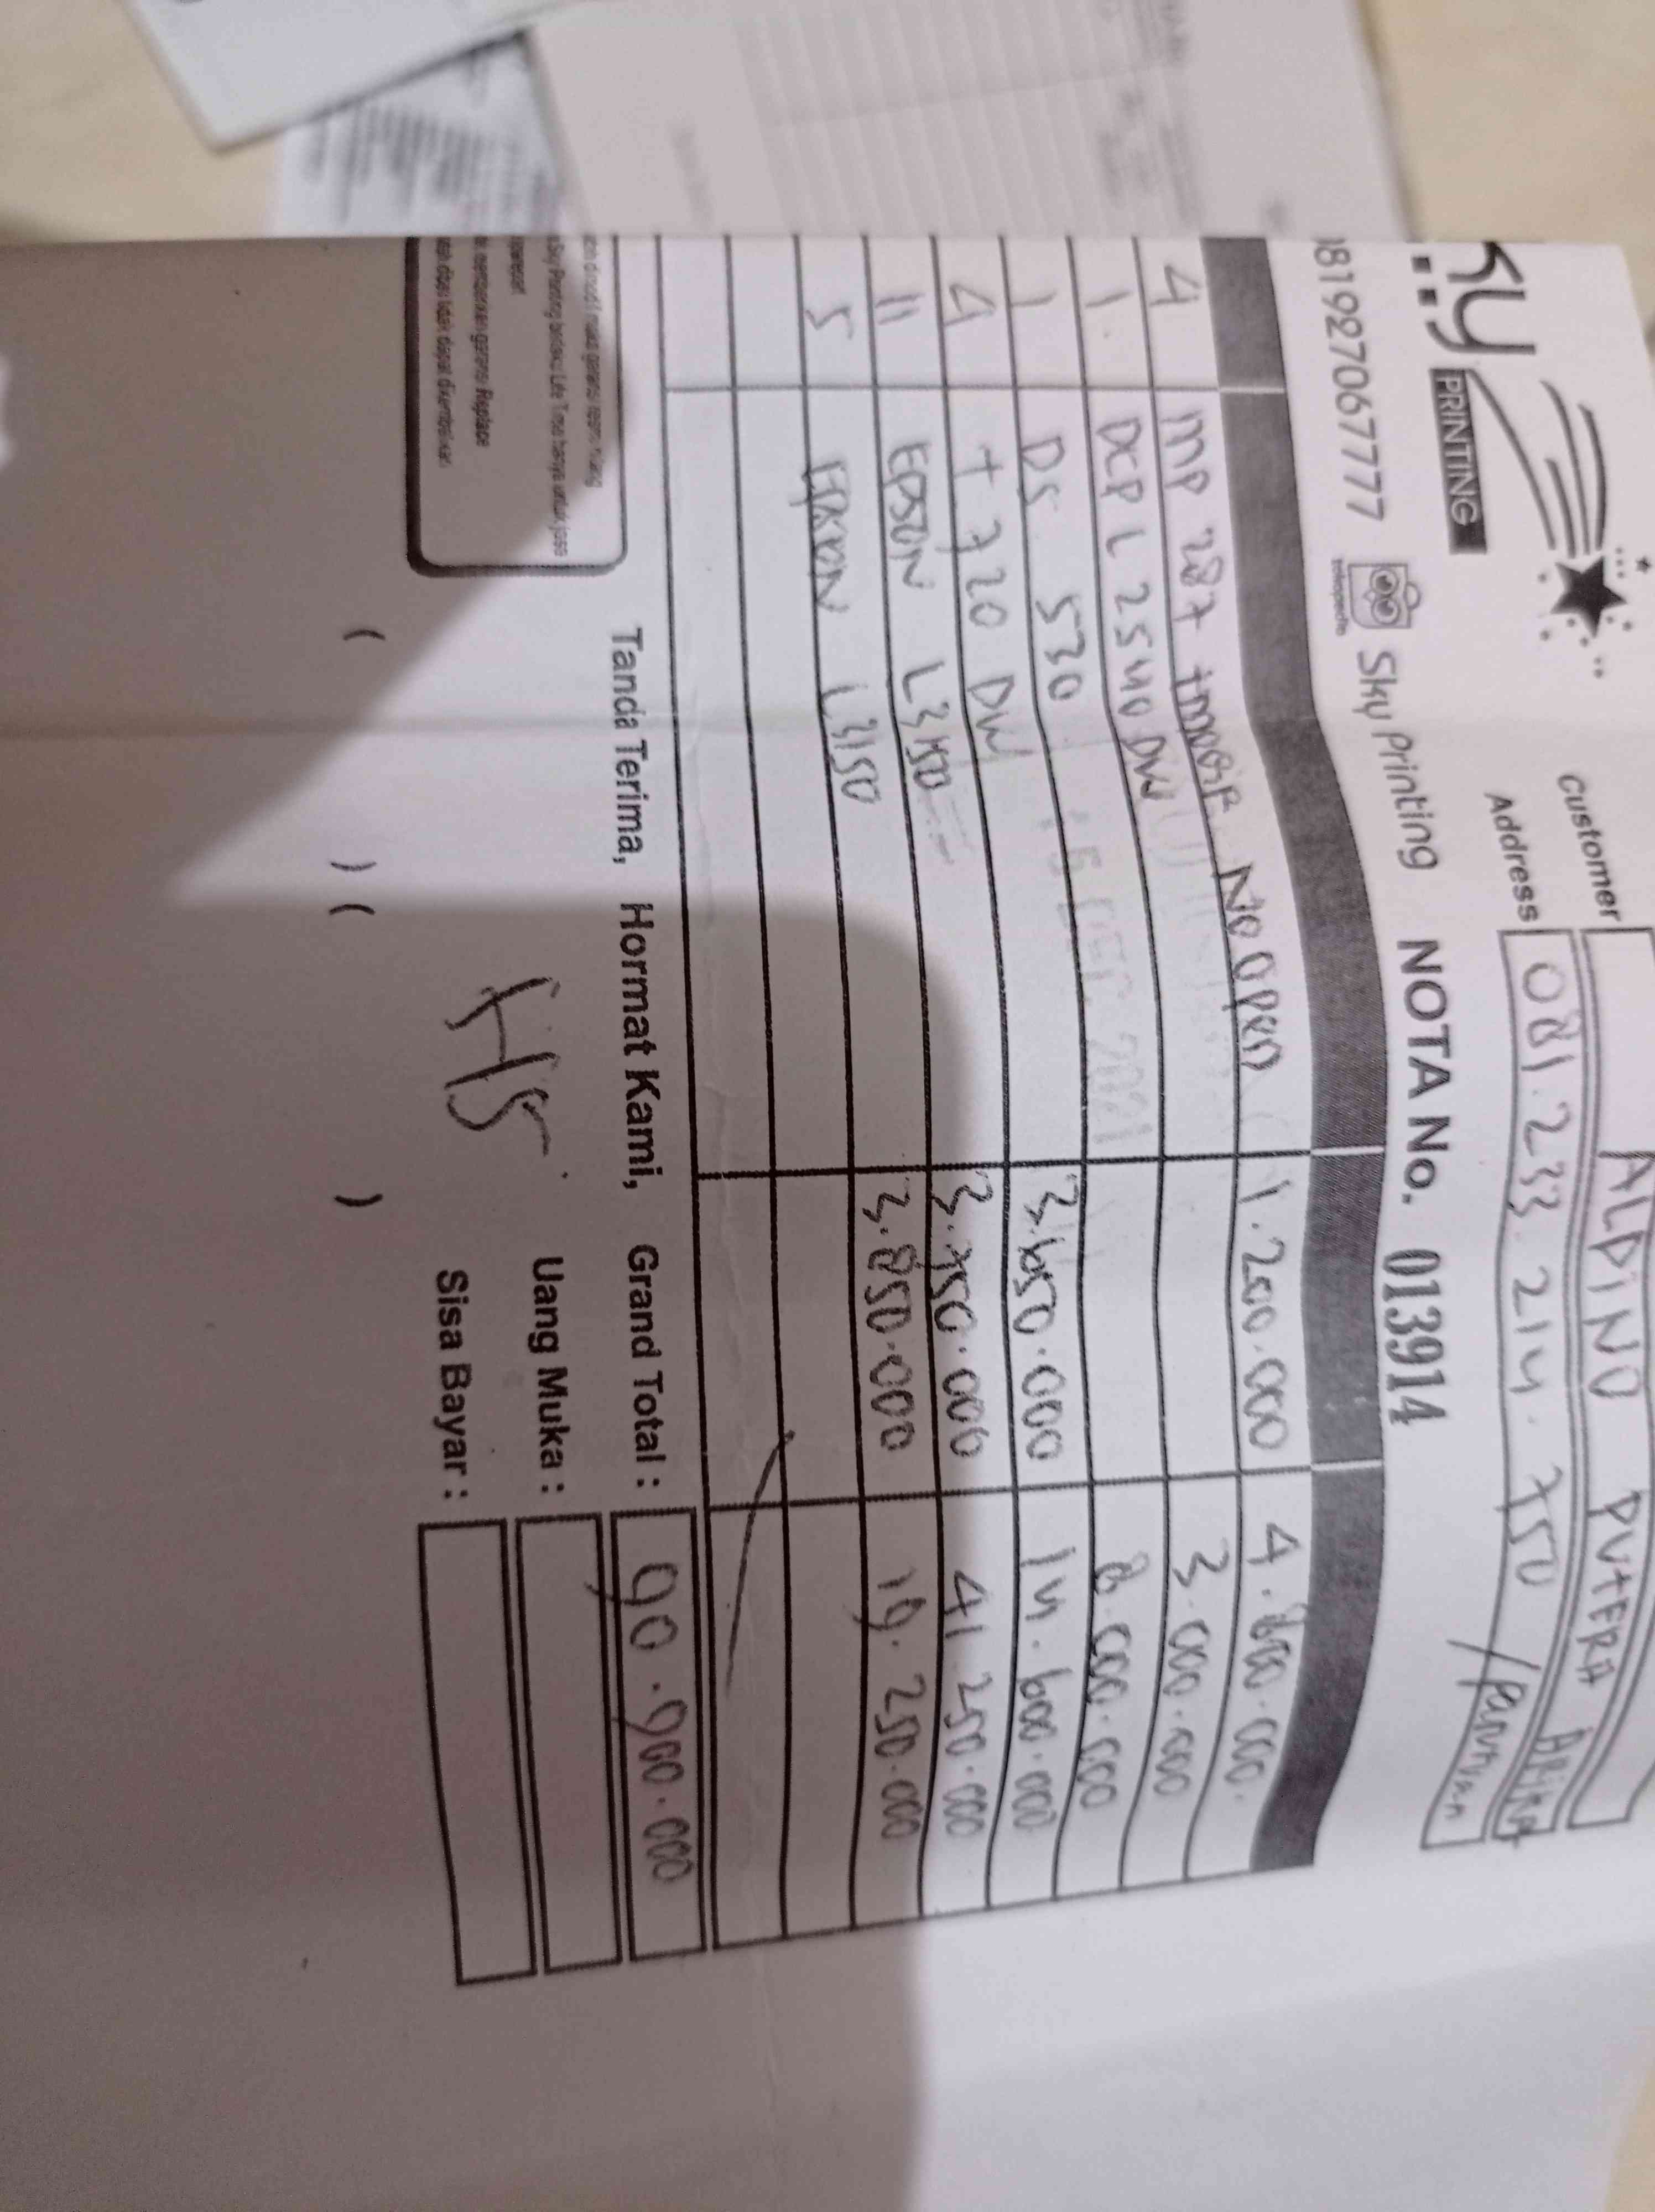 PRINTING
Customer ALDINO PUTERA
Address 081.233.214.750
819270677777 tokopedia Sky Printing NOTA No. 013914
4 MP 287 NO OPEN 1.200.000 4.800.000
1 DCP L 2540 DW 3.000.000
1 DS 530 8.000.000
4 T 720 DW 3.650.000 14.600.000
11 EPSON 3.750.000 41.250.000
5 EPSON L3150 3.850.000 19.250.000
Tanda Terima, Hormat Kami, Grand Total : 90.900.000
Uang Muka :
Sisa Bayar :
( ) ( )